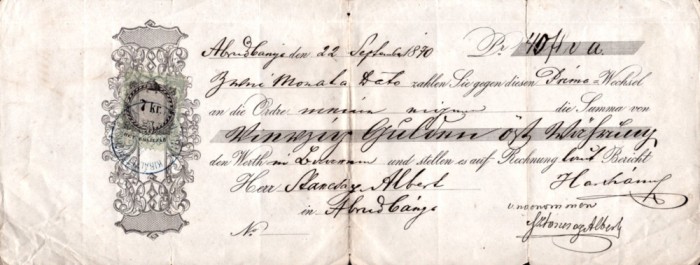 Abrudbanya den 22 September 1870 Pr. 40 f ö. W.
Zwei Monata Dato zahlen Sie gegen diesen Prima=Wechsel
an die Ordre meine eigene die Summa von
Vierzig Gulden öst Währung
den Werth in Baarem und stellen es auf Rechnung laut Bericht
Herr Albert
in Abrudbánya
angenommen
Albert
No.
7 Kr.